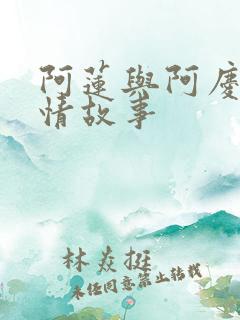 阿蓮與阿慶
情故事
林焱挺
未经同意禁止转载